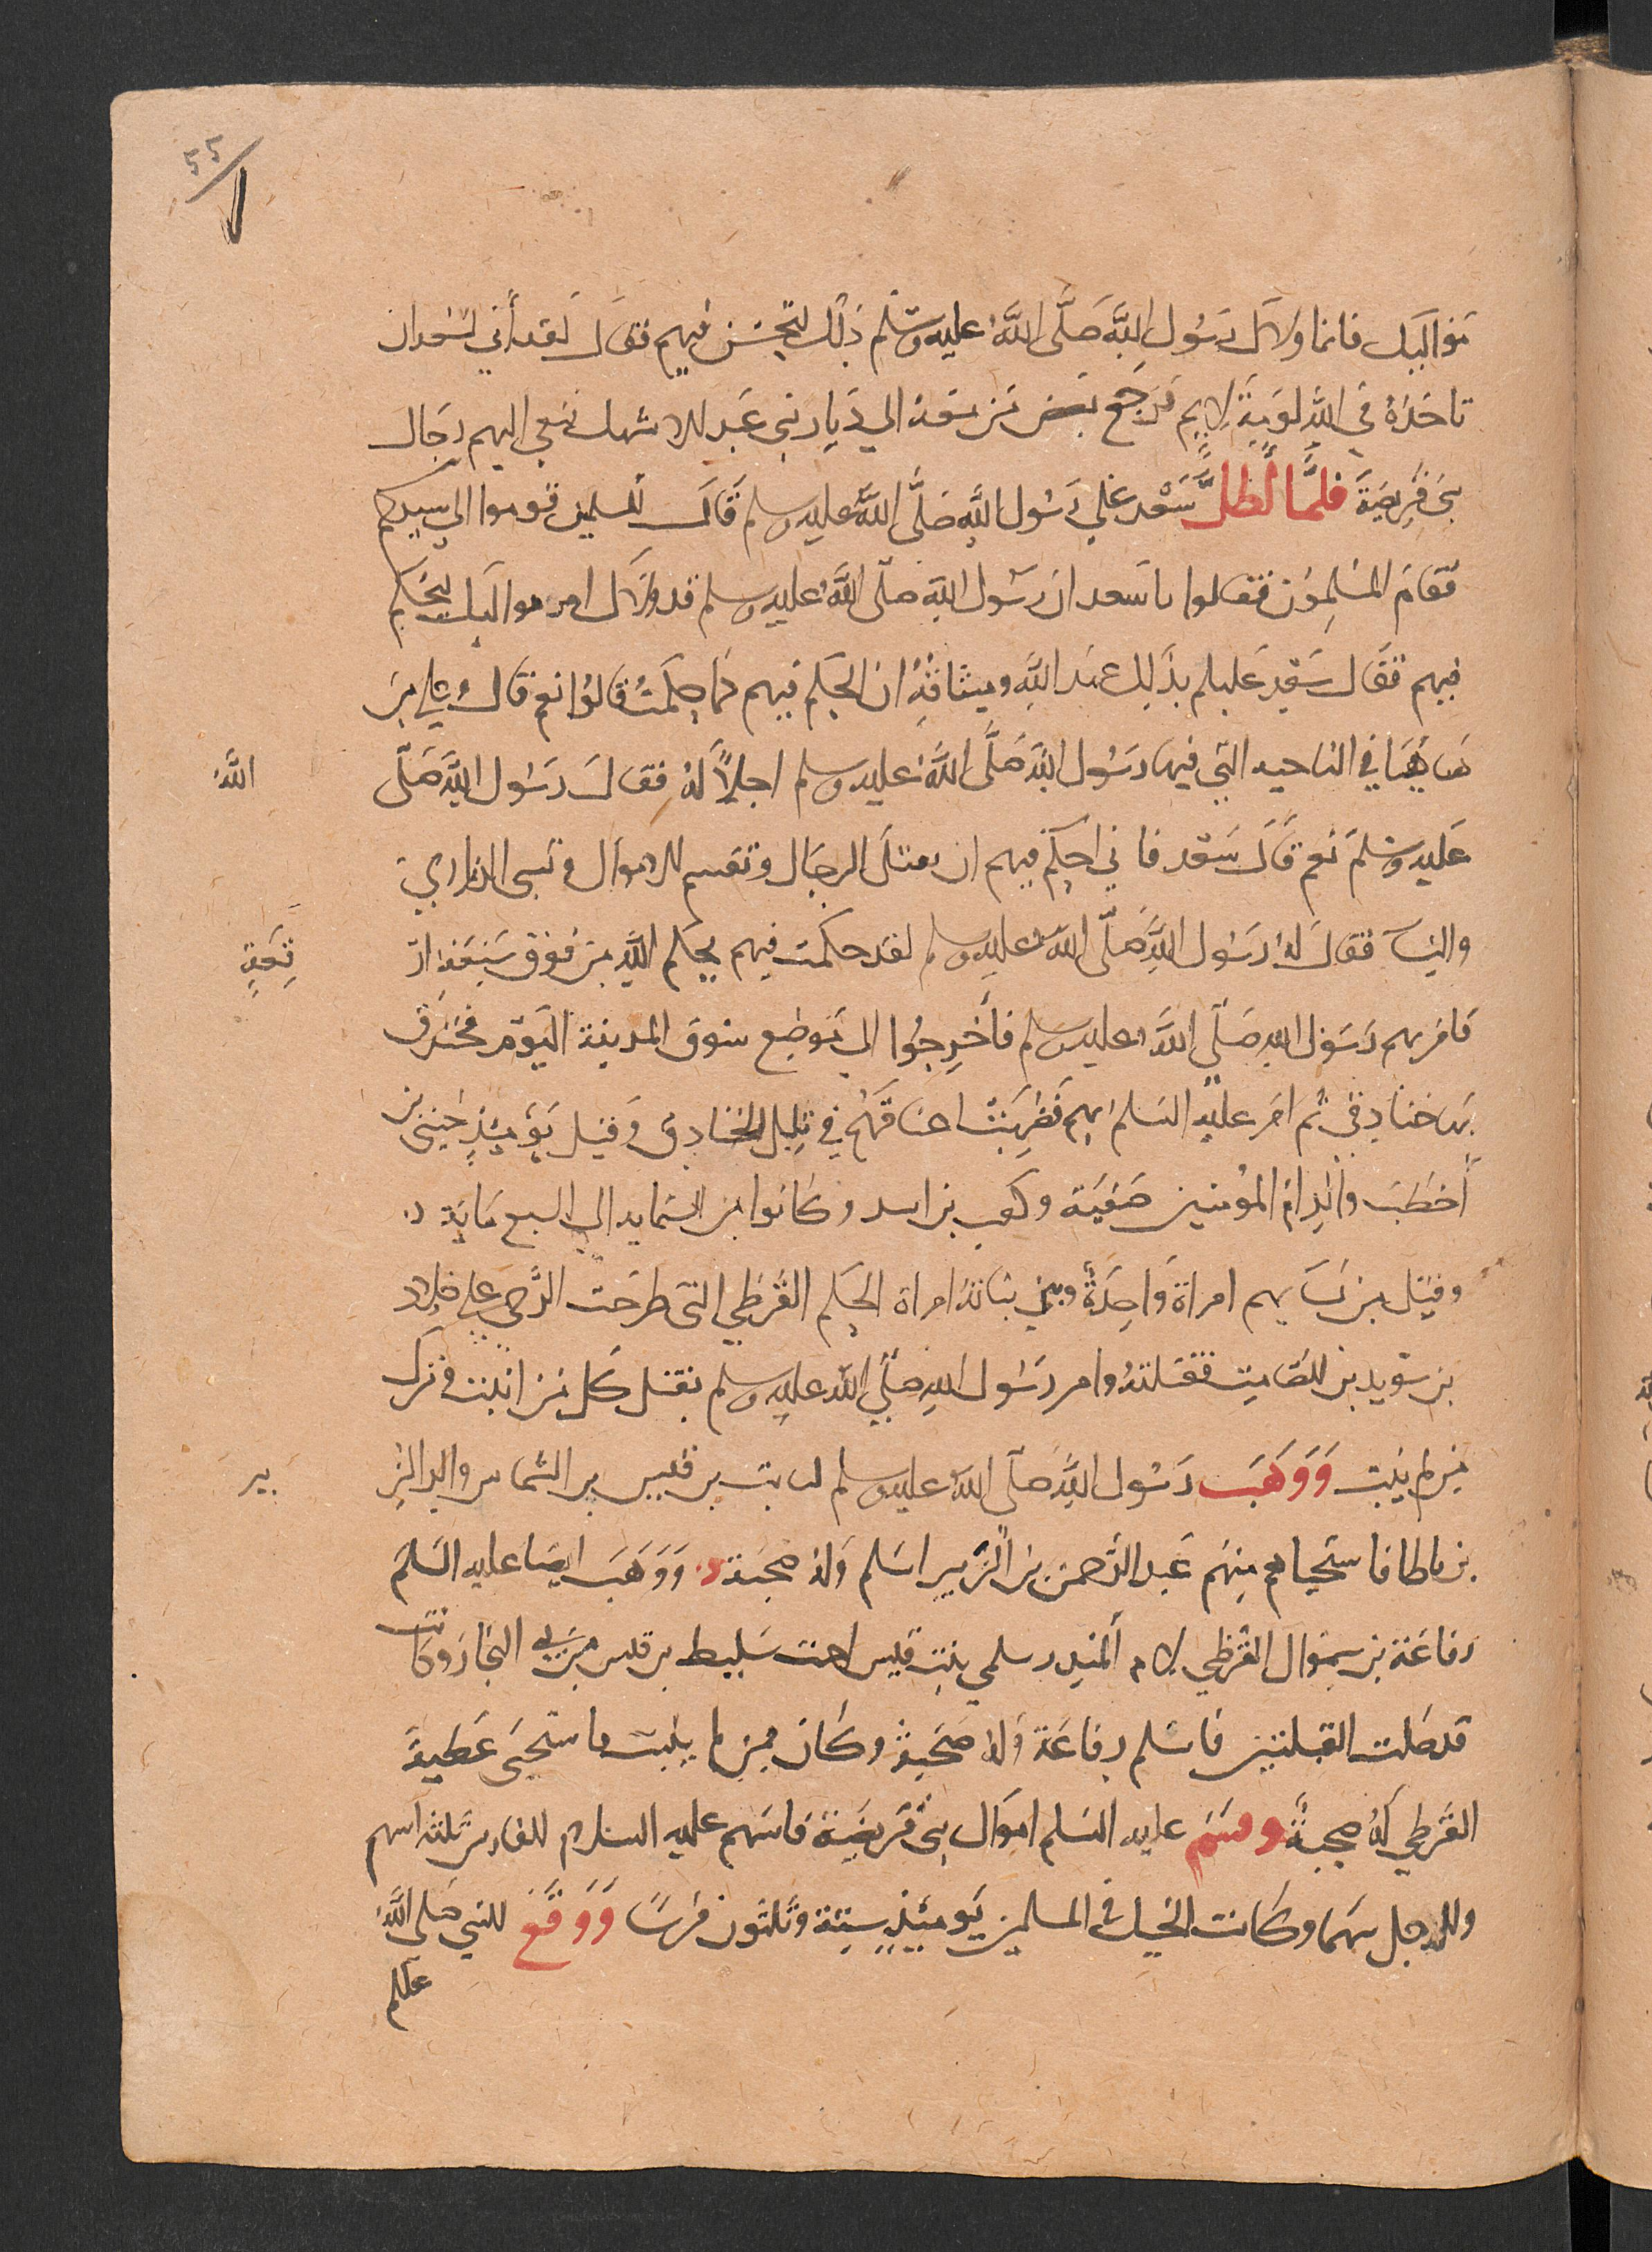 ٥٥
مواليك فانما ولاك رَسُول اللَّه صَلَّى اللَّهُ عليه وسلم ذلك لتحسن فيهم فقال لقد أني لسعد ان
تاخذهُ في اللَّهِ لومَة لايم فرجع بعض من معه الي دِيار بني عَبد الاشهل فنعي اليهم رجال
بني قريضَة فلمَّا أظلَّ سَعْد علي رَسُول اللَّه صَلَّى اللَّهُ عليه وسلم قَال للمسلمين قوموا الي سيدكم
فقامَ المسْلِمُون فقالوا ياسَعد ان رسُول اللَّه صلّى اللَّهُ عليه وسلم قد ولاك امر مواليك لتحكم
فيهم فقال سَعْد عَليكم بذَلِك عهد اللَّهِ وميثاقهُ ان الحكم فيهم كما حكمتُ قالوا نعم قال وعلي من
هَاهُنَا في الناحيه التي فيها رَسُول اللَّه صَلَّى اللَّهُ عليه وسلم اجلالاً لهُ فقال رَسُول اللَّهِ صَلّى اللَّهُ
عَليه وسَلم نَعم قال سَعْد فاني احكم فيهم ان يقتل الرجَال وتقسم الاموال وتسبي الذراري
والنسآ فقال لهُ رسُول اللَّهِ صَلّى اللَّه عليه وسلم لقد حكمت فيهم بحكم اللَّهِ من فوق سَبعَة ار قِعَةٍ
فامر بهم رَسُول اللهِ صَلّى اللَّهُ عليه وسلم فأخرِجُوا الي مَوضِع سُوق المدينة اليَوم فخندق
بها خنادِق ثم امر عليْه السَلم بهم فضُرِبَتْ اعناقهُم في تلك الخنادِق وقتل يَوْمَئِذٍ حُيَي بن
أخطَبَ والِد ام المؤمنين صَفيّة وكعب بن اسد وكانوا من الستمايه الي السبع مَايَة
وقتل من نسَايهم امراة وَاحِدَةٌ وهي بنانَةُ امراة الحكم القُرَظي التي طرحَت الرَّحي علي خلاد
بن سُويد بن الصَامِت فقتلتهُ وامر رَسُول اللهِ صَلّي اللَّه عليه وسلم بقتل كل من انبت وترك
من لم ينبت وَوَهَبَ رَسُول اللَّهِ صَلّى اللَّهُ عليه وسلم لثابت بن قيس بن الشماس والد الز بير
بن باطا فاستحيا هم مِنهم عَبد الرَّحمن بن الزَّبير اسَلم وَلهُ صحبَة وَوَهَبَ ايضا عليه السَلم
رفاعَة بن سموال القُرظي لام المنذر سلمي بنت قيس اخت سَليط بن قيس من بَني النجَار وكانت
قد صَلت القبلتين فاسَلم رفاعَة ولهُ صُحْبة وكان ممن لم ينبت فاستحيَي عَطيةَ
القُرظي لَهُ صحبةٌ وقسَم عليه السَلم امَوال بني قريضَة فاسَهم عليه السلام للفارس ثلثه اسهم
وللرجل سهما وكانت الخيل في المسلمين يَومَئِذٍ سِتَة وثلثون فرسًا وَوَقَعَ للنبي صَلى اللَّهُ
عليه